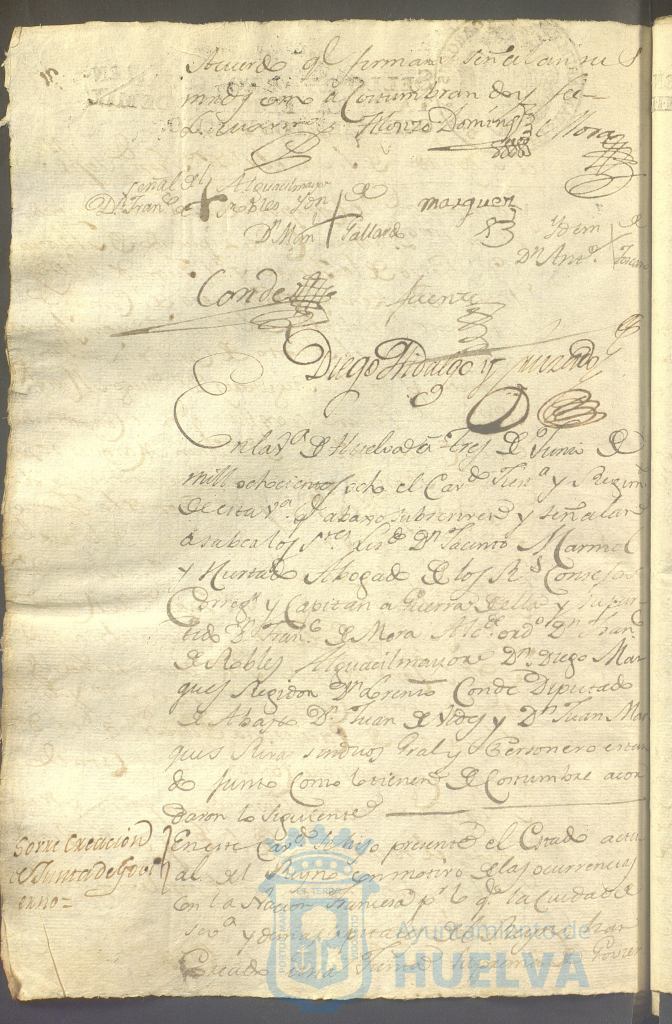 Acuerdo qe. firman y señalan su S
mrds como a Costumbran doy fee
Alonzo Doming. de Mora
señal del + Alguacilmayor
Dn. Franco. de Robles Idem + de marquez
Dn. Man Gallardo Idem de
Dn. Anto.
Conde fuente
Diego Hidalgo y
En la va. de Huelva en tres de Junio de
mill ochocientos ocho el Cavdo. Justa. y Regimto
de esta va. qe. abaxo subscriven y señalan
a saber los Sres. Lizdo. Dn. Jacinto Marmol
y Hurtado Abogado de los Rs. Consejos
Corregr. y Capitan a Guerra de ella y su par
tido Dn. Franco. de Mora Alce. ordo. Dn. Fran
de Robles Alguacilmayor Dn. Diego Mar
ques Regidor Dn. Lorenzo Conde Diputado
de Abasto Dn. Juan de y Dn. Juan Mar
ques sindicos Gral y Personero estan
do junto Como lo tienen de Costumbre acor
daron lo siguiente
Sobre Creacion
de Junta de Govi
erno =
En este Cavdo. se hiso presente el Estado actu
al del Reyno con motivo de las ocurrencias
con la Nacion francesa pr. lo qe. la Ciudad de
Seva. y demas Capitales del Reyno han
Creado una Junta suprema de Govier
Ayuntamiento de
HUELVA